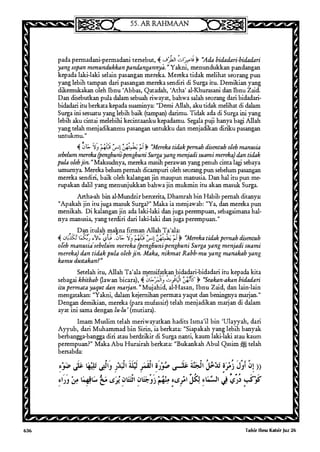 55. AR RAHMAAN
pada permadani-permadani tersebut, ﴿ قَاصِرَاتُ الطَّرْفِ ﴾ "Ada bidadari-bidadari
yang sopan menundukkan pandangannya." Yakni, menundukkan pandangan
kepada laki-laki selain pasangan mereka. Mereka tidak melihat seorang pun
yang lebih tampan dari pasangan mereka sendiri di Surga itu. Demikian yang
dikemukakan oleh Ibnu 'Abbas, Qatadah, 'Atha' al-Khurasani dan Ibnu Zaid.
Dan disebutkan pula dalam sebuah riwayat, bahwa salah seorang dari bidadari-
bidadari itu berkata kepada suaminya: "Demi Allah, aku tidak melihat di dalam
Surga ini sesuatu yang lebih baik (tampan) darimu. Tidak ada di Surga ini yang
lebih aku cintai melebihi kecintaanku kepadamu. Segala puji hanya bagi Allah
yang telah menjadikanmu pasangan untukku dan menjadikan diriku pasangan
untukmu."
﴿ لَمْ يَطْمِثْهُنَّ إِنسٌ قَبْلَهُمْ وَلَا جَانٌّ ﴾ "Mereka tidak pernah disentuh oleh manusia
sebelum mereka (penghuni-penghuni Surga yang menjadi suami mereka) dan tidak
pula oleh jin." Maksudnya, mereka masih perawan yang penuh cinta lagi sebaya
umurnya. Mereka belum pernah dicampuri oleh seorang pun sebelum pasangan
mereka sendiri, baik oleh kalangan jin maupun manusia. Dan hal itu pun me-
rupakan dalil yang menunjukkan bahwa jin mukmin itu akan masuk Surga.
Artha-ah bin al-Mundzir bercerita, Dhamrah bin Habib pernah ditanya:
"Apakah jin itu juga masuk Surga?" Maka ia menjawab: "Ya, dan mereka pun
menikah. Di kalangan jin ada laki-laki dan juga perempuan, sebagaimana hal-
nya manusia, yang terdiri dari laki-laki dan juga perempuan."
Dan itulah makna firman Allah Ta'ala:
﴿ لَمْ يَطْمِثْهُنَّ إِنسٌ قَبْلَهُمْ وَلَا جَانٌّ. فَبِأَيِّ آلَاءِ رَبِّكُمَا تُكَذِّبَانِ ﴾ "Mereka tidak pernah disentuh
oleh manusia sebelum mereka (penghuni-penghuni Surga yang menjadi suami
mereka) dan tidak pula oleh jin. Maka, nikmat Rabb-mu yang manakah yang
kamu dustakan?"
Setelah itu, Allah Ta'ala menyifatkan bidadari-bidadari itu kepada kita
sebagai khithab (lawan bicara), ﴿ كَأَنَّهُنَّ الْيَاقُوتُ وَالْمَرْجَانُ ﴾ "Seakan-akan bidadari
itu permata yaqut dan marjan." Mujahid, al-Hasan, Ibnu Zaid, dan lain-lain
mengatakan: "Yakni, dalam kejernihan permata yaqut dan beningnya marjan."
Dengan demikian, mereka (para mufassir) telah menjadikan marjan di dalam
ayat ini sama dengan lu-lu' (mutiara).
Imam Muslim telah meriwayatkan hadits Isma'il bin 'Ulayyah, dari
Ayyub, dari Muhammad bin Sirin, ia berkata: "Siapakah yang lebih banyak
berbangga-bangga diri atau berdzikir di Surga nanti, kaum laki-laki atau kaum
perempuan?" Maka Abu Hurairah berkata: "Bukankah Abul Qasim ﷺ telah
bersabda:
(( إِنَّ أَوَّلَ زُمْرَةٍ تَدْخُلُ الْجَنَّةَ عَلَى صُورَةِ الْقَمَرِ لَيْلَةَ الْبَدْرِ وَالَّتِي تَلِيهَا عَلَى ضَوْءِ
636
Tafsir Ibnu Katsir Juz 26